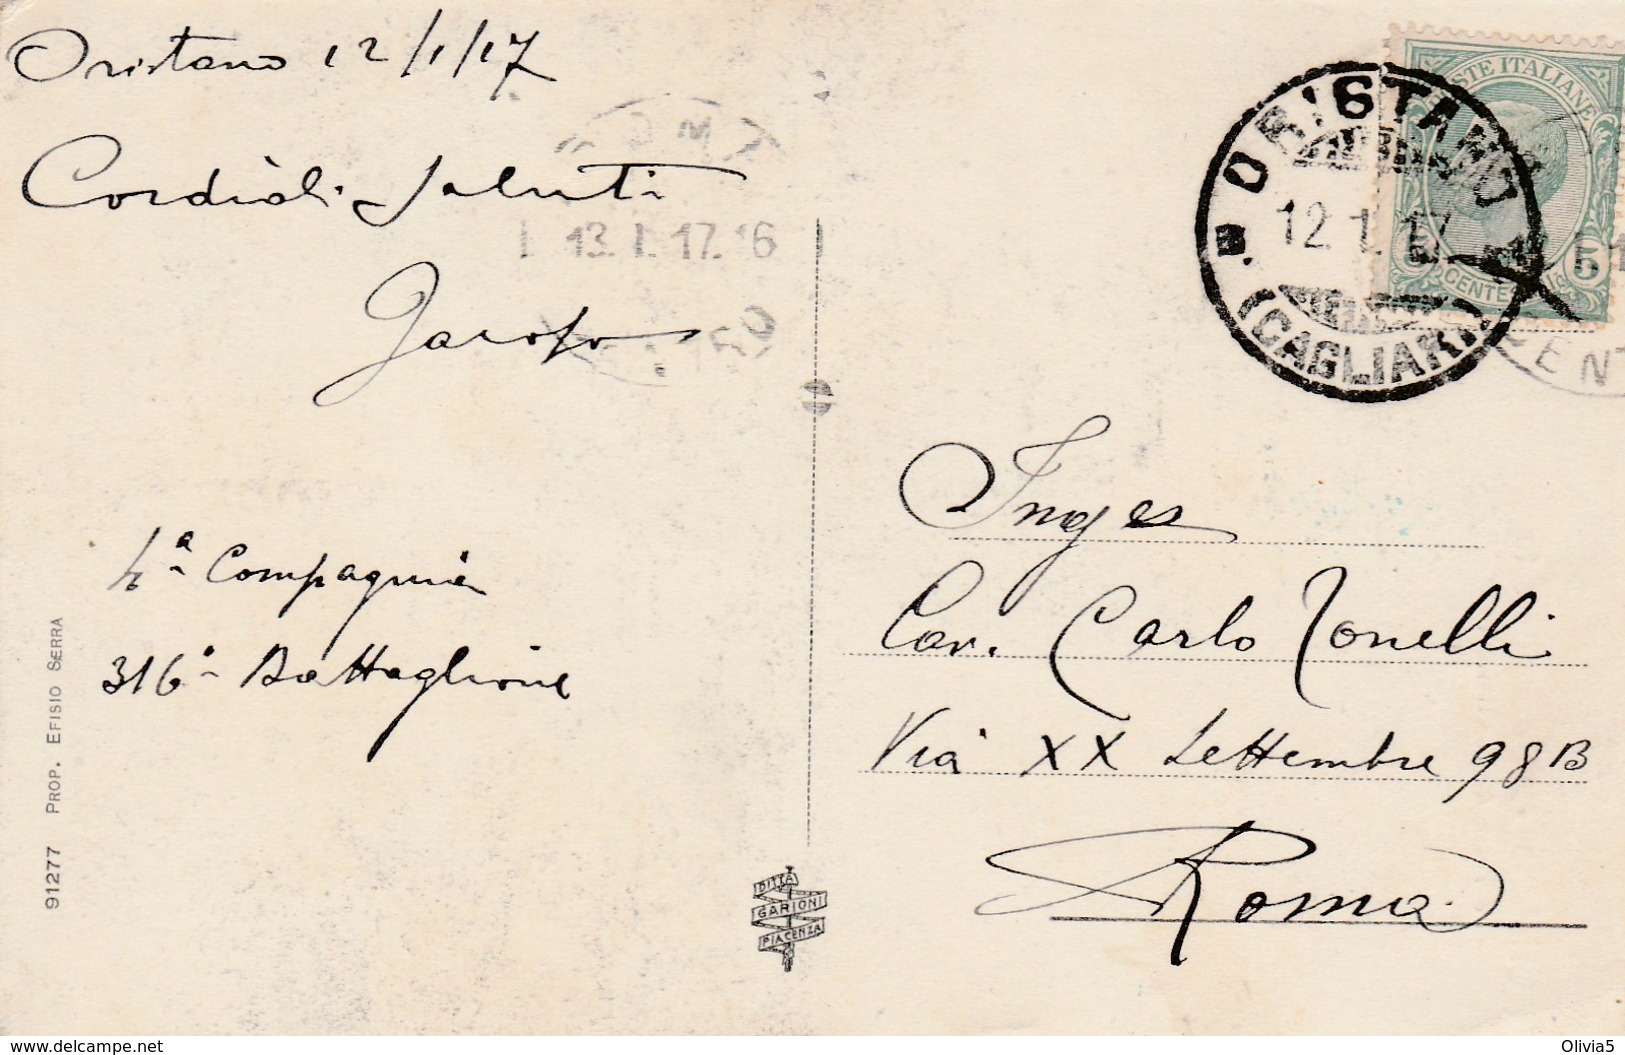 Oristano 12/1/17
Cordiali Saluti
4ª Compagnia
316° Battaglione
91277 PROP. EFISIO SERRA
DITTA
GARIONI
PIACENZA
POSTE ITALIANE
CENTES
5
ORISTANO
12.1.17
(CAGLIARI)
13.1.17.16
CENT
Inger
Cav. Carlo Tonelli
Via XX Settembre 98B
Roma
www.delcampe.net
Olivia5